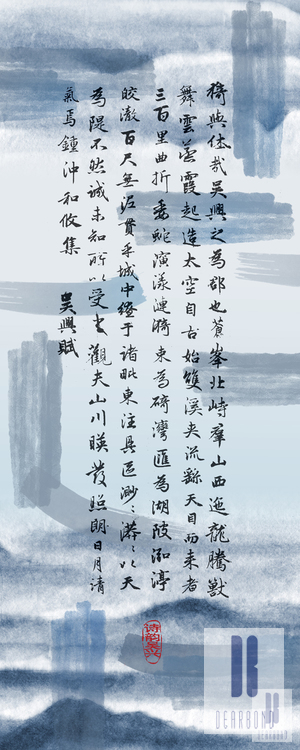 猗與休哉吳興之為郡也蒼峯北峙羣山西迤龍騰獸
舞雲蒸霞起造太空自古始雙溪夾流繇天目而來者
三百里曲折委蛇演漾漣漪束為碕灣匯為湖陂泓渟
皎澈百尺無泥貫乎城中繚于諸毗東注具區渺渺漭漭以天
為隄不然誠未知所以受之觀夫山川映發照朗日月清
氣焉鍾沖和攸集
吳興賦
诗韵吴兴
DEARBOND
DEARBOND